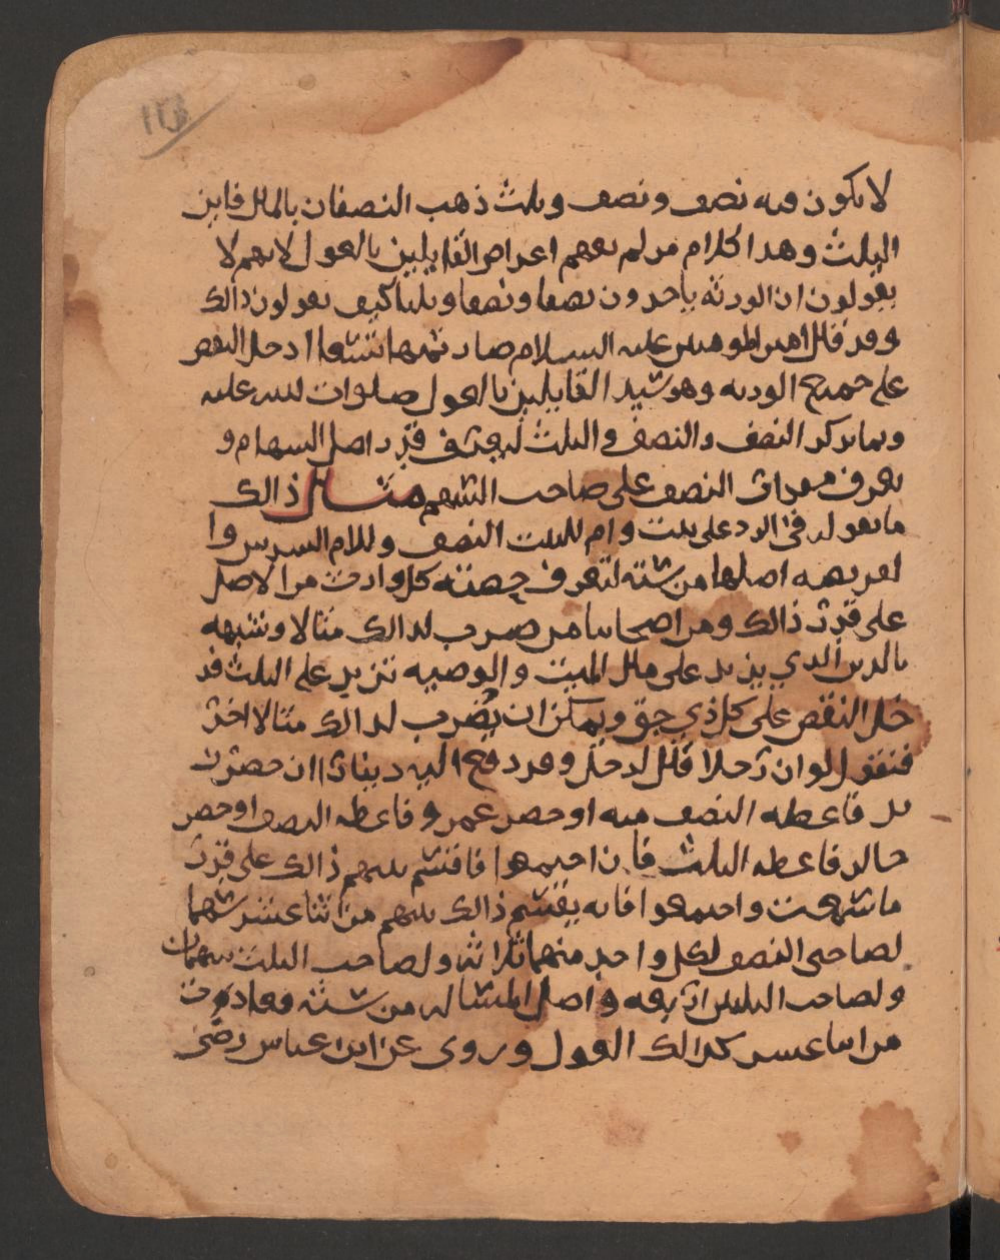 ١١٤
لا يكون فيه نصف ونصف وثلث ذهب النصفان بالمال فاين
الثلث وهذا كلام من لم يفهم اعراض القايلين بالعول لانهم لا
يقولون ان الورثة ياخذون نصفا ونصفا وثلثا كيف يقولون ذالك
وقد قال امير المومنين عليه السلام صار ثمنها تسعا ادخل النقص
على جميع الورثه وهو سيد القايلين بالعول صلوات الله عليه
وبما نذكر النصف والنصف والثلث ليعرف قدر اصل السهام و
يعرف النصف على صاحب السهم مثال ذالك
ما نقول في الرد على بنت وام للبنت النصف وللام السدس وا
لفريضه اصلها من سته لتعرف حصته كل وارث من الاصل
على قدر ذالك ومن اصحابنا من ضرب لذالك مثالا وشبهه
بالدين الذي يزيد على مال الميت والوصيه تزيد على الثلث فد
خل النقص على كل ذي حق ويمكن ان يضرب لذالك مثالا اخر
فنقول لو ان رجلا قال لرجل وقد دفع اليه دينارا ان حضر
يد فاعطه النصف منه او حضر عمرو فاعطه النصف او حضر
خالد فاعطه الثلث فان اجتمعوا فاقسم بينهم ذالك على قدر
ما سمعت واجتمعوا فانه يقسم ذالك بينهم من اثنا عشر سهما
لصاحبي النصف لكل واحد منهما ثلاثه ولصاحب الثلث سهمان
ولصاحب الثلثين اربعه واصل المسئاله من سته فعادت
من اثنا عشر كذالك العول وروي عن ابن عباس رضي